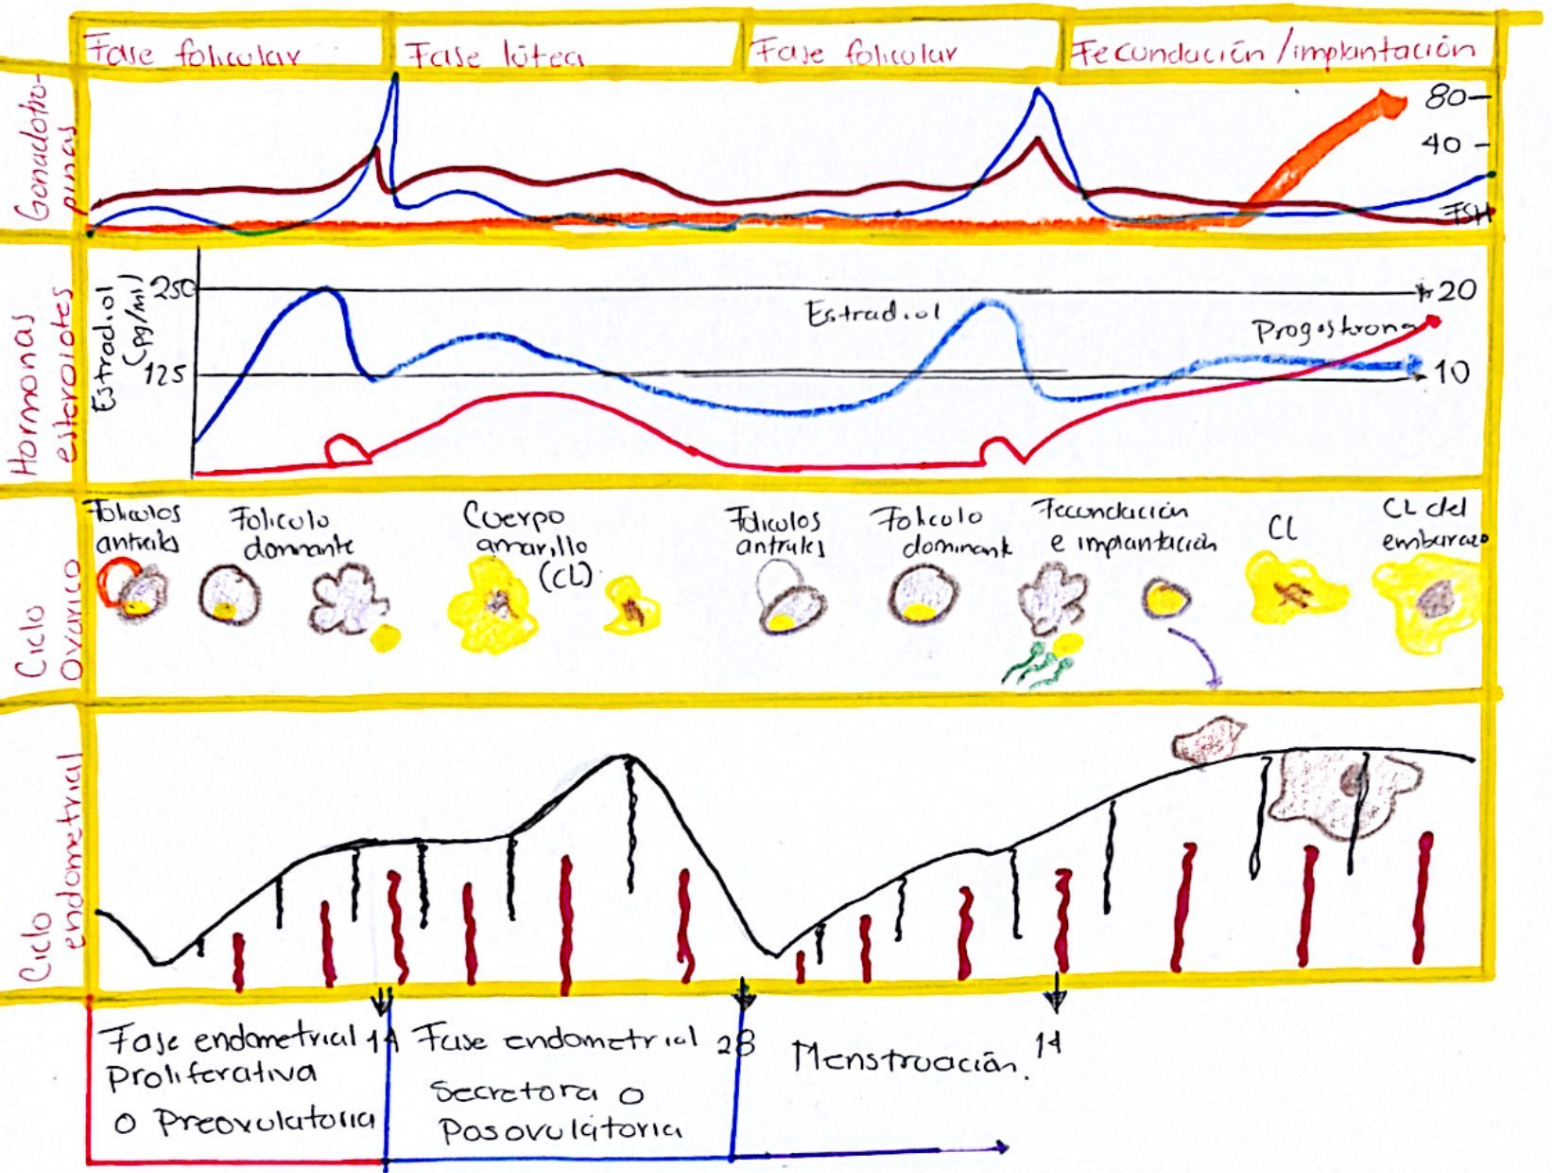 Fase folicular
Fase lútea
Fase folicular
Fecundación/implantación
Gonadotro-
pinas
80
40
FSH
Hormonas
esteroiotes
Estradiol
(pg/ml)
250
125
Estradiol
Progestrona
20
10
Ciclo
ovarico
Foliculos
antrales
Foliculo
dominante
Cuerpo
amarillo
(CL)
Foliculos
antrales
Foliculo
dominante
Fecundación
e implantación
CL
CL del
embarazo
Ciclo
endometrial
Fase endometrial
Proliferativa
o Preovulatoria
14
Fase endometrial
Secretora o
Posovulatoria
28
Menstruación.
14